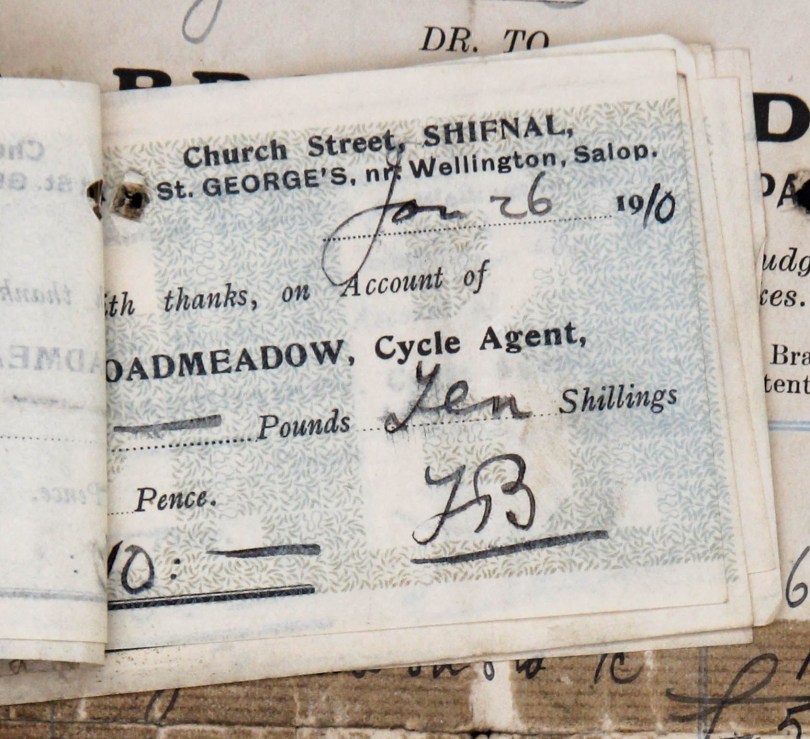 DR. TO
Church Street, SHIFNAL,
St. GEORGE'S, nr. Wellington, Salop.
Jan 26 1910
ith thanks, on Account of
OADMEADOW, Cycle Agent,
— Pounds Ten Shillings
Pence.
JB
10: —
D
udg
es.
Bra
tent
6
5